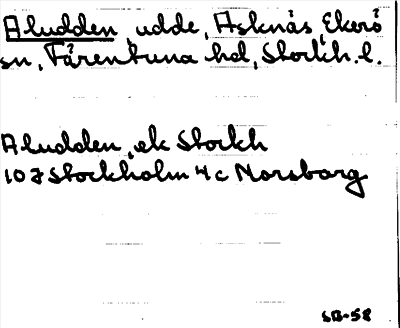 Aludden, udde, Asknäs, Ekerö
sn, Färentuna hd, Stockh. l.
Aludden, ek Stockh
10 I Stockholm 4 c Norsborg
SB-58